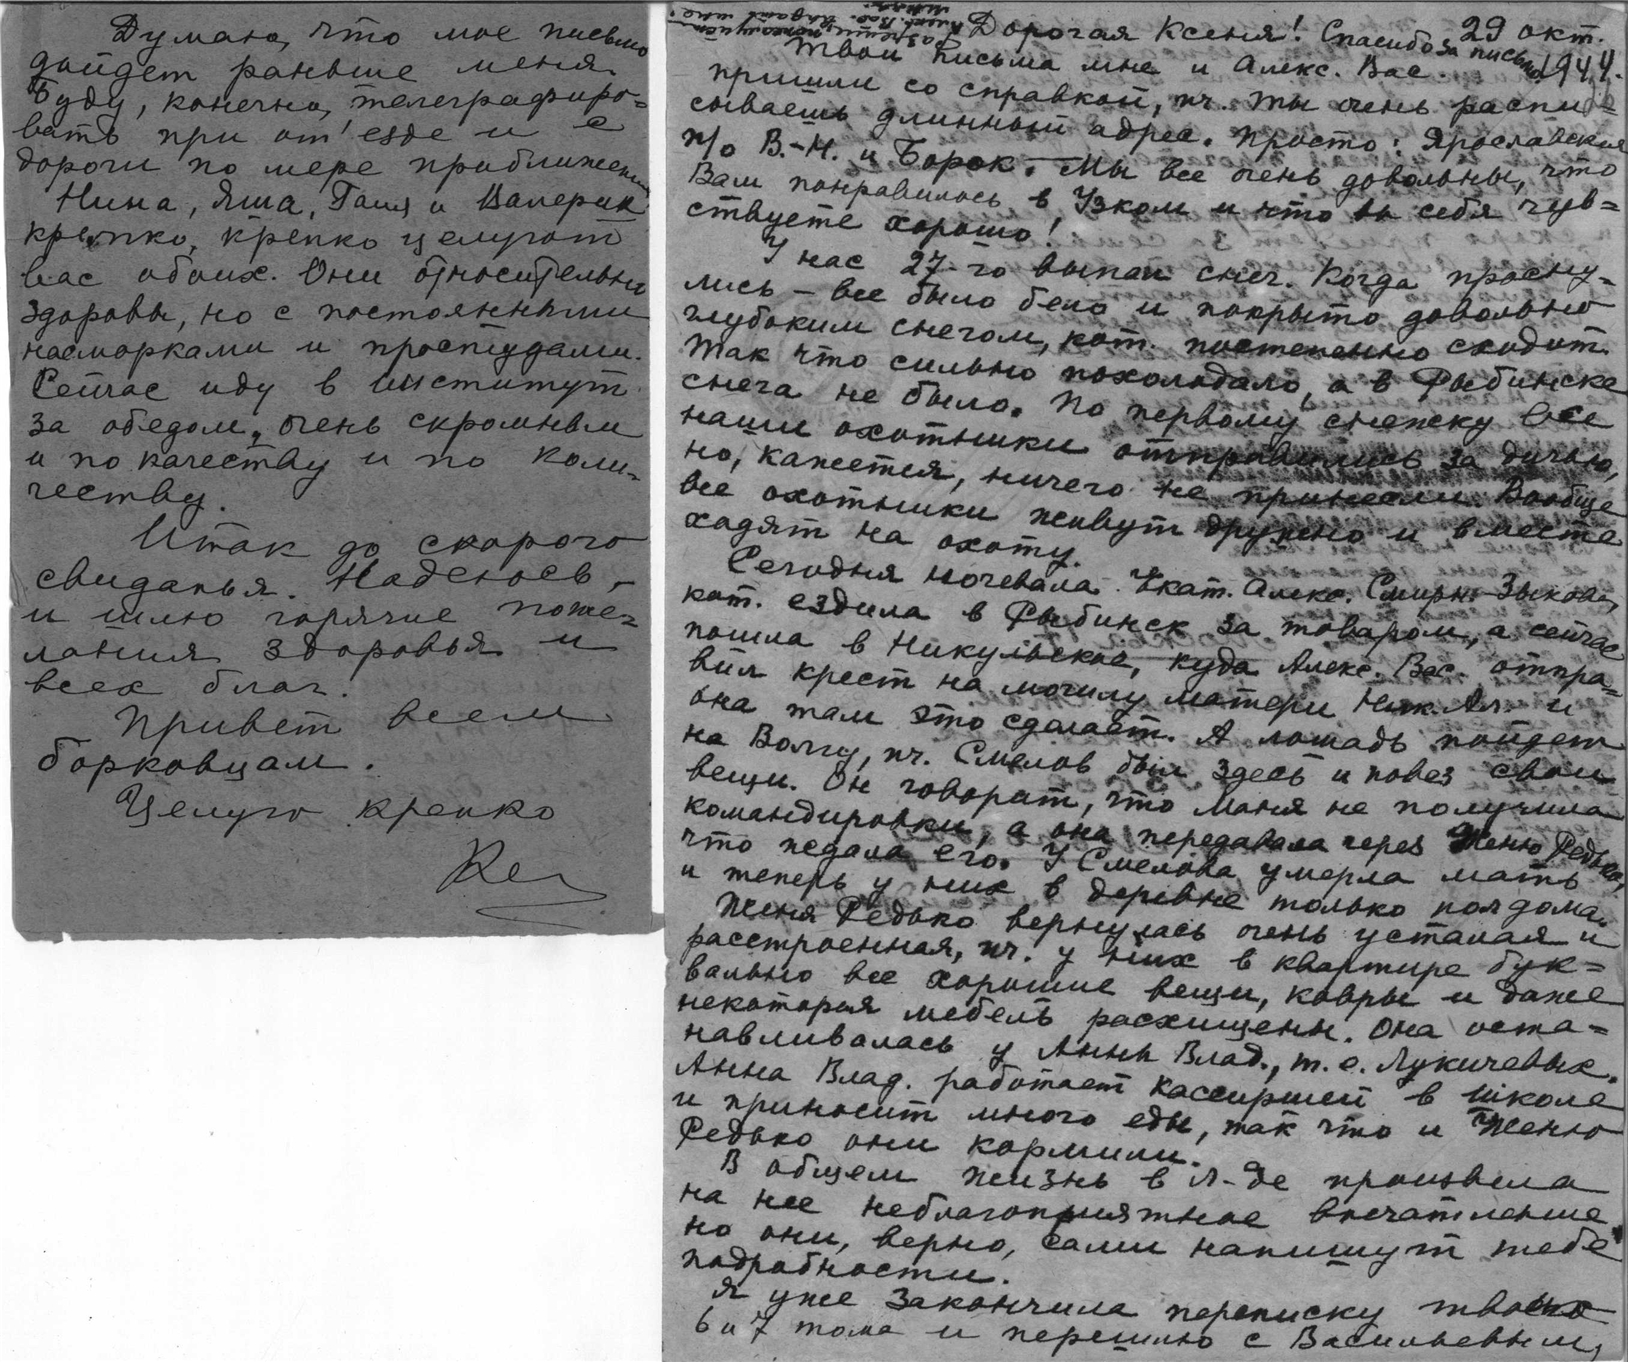 Думаю, что мое письмо
дойдет раньше меня.
Буду, конечно, телеграфиро=
вать при от'езде и с
дороги по мере приближения
Нина, Яша, Галя и Валерик
крепко, крепко целуют
вас обоих. Они относительно
здоровы, но с постоянными
насморками и простудами.
Сейчас иду в институт
за обедом, очень скромным
и по качеству и по коли-
честву.
Итак до скорого
свиданья. Надеюсь,
и шлю горячие поже=
лания здоровья и
всех благ.
Привет всем
борковцам.
Целую крепко
Кс
29 окт.
1944.
Дорогая Ксеня! Спасибо за письмо
Твои письма мне и Алекс. Вас.
пришли со справкой, пч. ты очень распи=
сываешь длинный адрес. Просто: Ярославская
п/о В.-Н. и Борок. Мы все очень довольны, что
Вам понравилось в Узком и что вы себя чув=
ствуете хорошо!
У нас 27-го выпал снег. Когда просну=
лись – все было бело и покрыто довольно
глубоким снегом, кот. постепенно сходит.
Так что сильно похолодало, а в Рыбинске
снега не было. По первому снежку все
наши охотники отправились за дичью,
но, кажется, ничего не принесли. Вообще
все охотники живут дружно и вместе
ходят на охоту.
Сегодня ночевала Екат. Алекс. Смирн.-Зыкова,
кот. ездила в Рыбинск за товаром, а сейчас
пошла в Никульское, куда Алекс. Вас. отпра=
вил крест на могилу матери Ник. Ал. и
она там это сделает. А лошадь пойдет
на Волгу, пч. Смелов был здесь и повез свои
вещи. Он говорит, что Маня не получила
командировки, а она передавала через Женю Редько,
что ждала его. У Смелова умерла мать
и теперь у них в деревне только полдома.
Женя Редько вернулась очень усталая и
расстроенная, пч. у них в квартире бук=
вально все хорошие вещи, ковры и даже
некоторая мебель расхищены. Она оста=
навливалась у Анны Влад., т.е. Лукичевых.
Анна Влад. работает кассиршей в школе
и приносит много еды, так что и Женю
Редько они кормили.
В общем жизнь в Л-де произвела
на нее неблагоприятное впечатление
но они, верно, сами напишут тебе
подробности.
Я уже закончила переписку твоего
6 и 7 тома и перешлю с Васильевым,